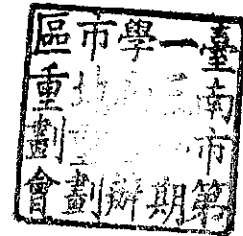 臺南市第
一期
學辦
市地重劃
區重劃會